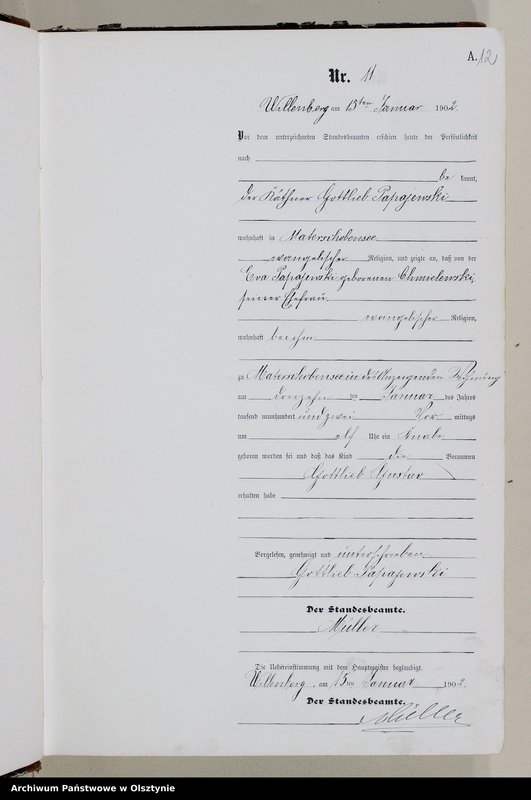 A. 12
Nr. 11
Willenberg am 15ten Januar 1902.
Vor dem unterzeichneten Standesbeamten erschien heute der Persönlichkeit
nach
be kannt,
der Käthner Gottlieb Papajewski
wohnhaft in Materschobensee
evangelischer Religion, und zeigte an, daß von der
Eva Papajewski geborenen Chmielewski,
seiner Ehefrau
evangelischer Religion,
wohnhaft bei ihm
zu Materschobensee in des Anzeigenden Wohnung
am dreizehn ten Januar des Jahres
tausend neunhundert und zwei Vor mittags
um elf Uhr ein Knabe
geboren worden sei und daß das Kind die Vornamen
Gottlieb Gustav
erhalten habe
Vorgelesen, genehmigt und unterschrieben
Gottlieb Papajewski
Der Standesbeamte.
Müller
Die Uebereinstimmung mit dem Hauptregister beglaubigt.
Willenberg, am 15 ten Januar 1902.
Der Standesbeamte.
Müller
Archiwum Państwowe w Olsztynie